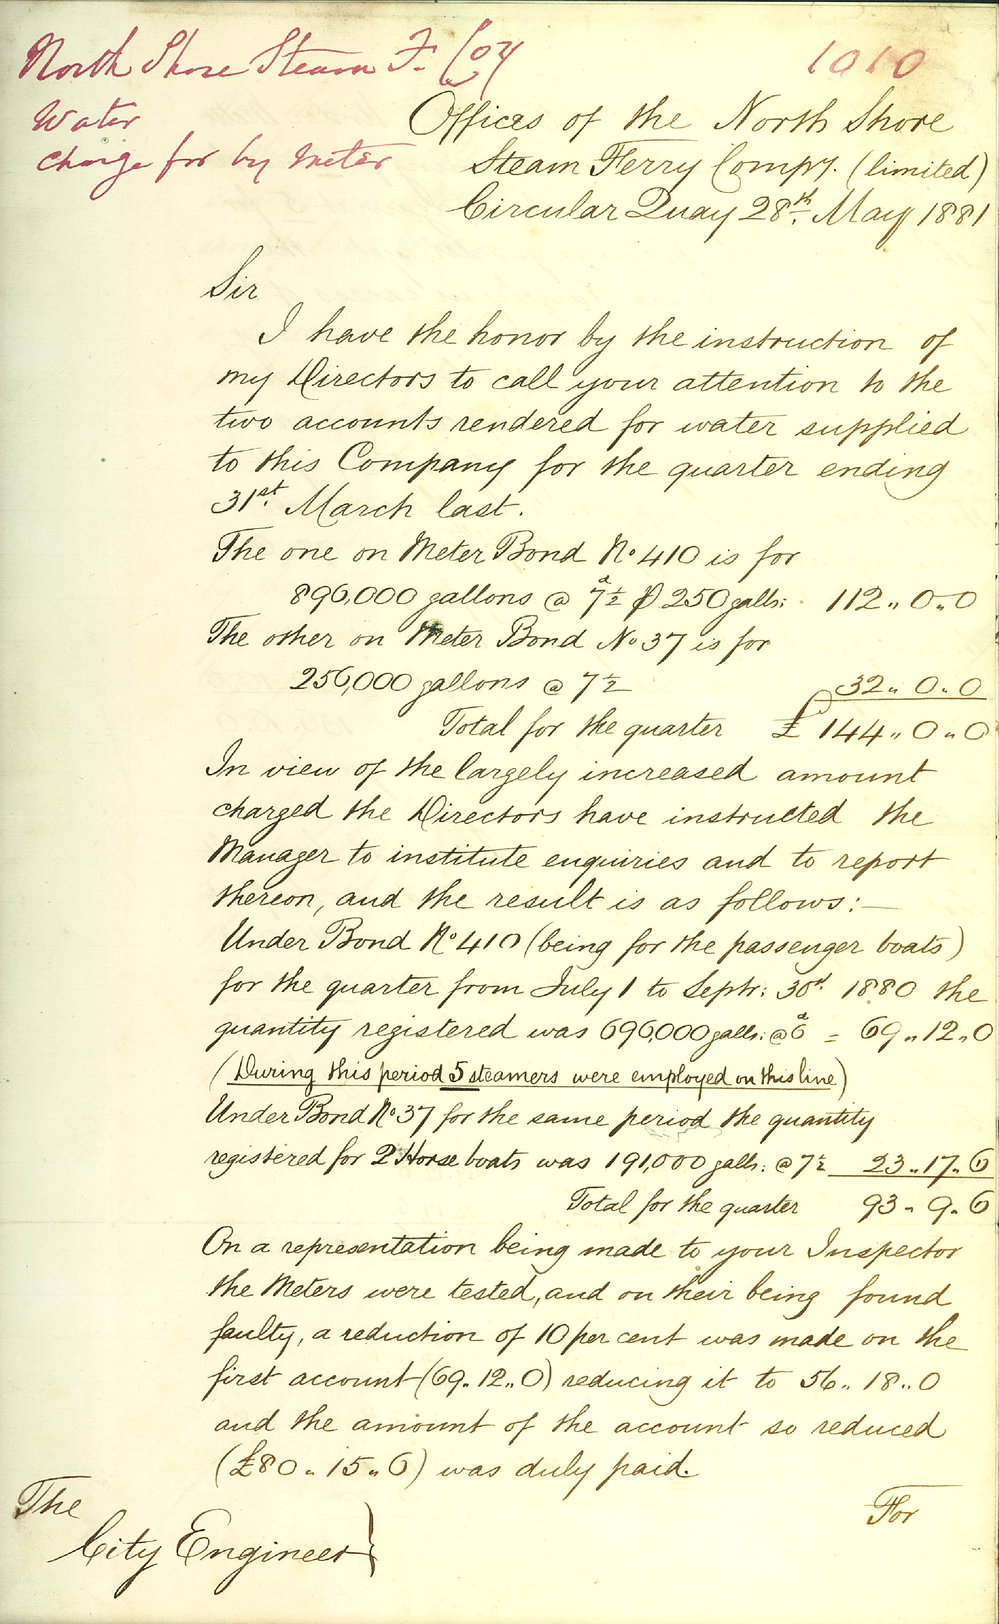 North Shore Steam F. Coy
1010
Water
charge for by Meter
Offices of the North Shore
Steam Ferry Compy. (limited)
Circular Quay 28th. May 1881
Sir
I have the honor by the instruction of
my Directors to call your attention to the
two accounts rendered for water supplied
to this Company for the quarter ending
31st. March last.
The one on Meter Bond No 410 is for
896,000 gallons @ 7½d ⅌ 250 galls: 112 " 0 " 0
The other on Meter Bond No 37 is for
256,000 gallons @ 7½ 32 " 0 " 0
Total for the quarter £ 144 " 0 " 0
In view of the largely increased amount
charged the Directors have instructed the
Manager to institute enquiries and to report
thereon, and the result is as follows:—
Under Bond No 410 (being for the passenger boats)
for the quarter from July 1 to Septr: 30d. 1880 the
quantity registered was 696,000 galls: @ 6d = 69 " 12 " 0
(During this period 5 steamers were employed on this line)
Under Bond No 37 for the same period the quantity
registered for 2 Horse boats was 191,000 galls: @ 7½ 23 " 17 " 6
Total for the quarter 93 " 9 " 6
On a representation being made to your Inspector
the Meters were tested, and on their being found
faulty, a reduction of 10 per cent was made on the
first account (69 " 12 " 0) reducing it to 56 " 18 " 0
and the amount of the account so reduced
(£80 " 15 " 6) was duly paid.
For
The
City Engineer